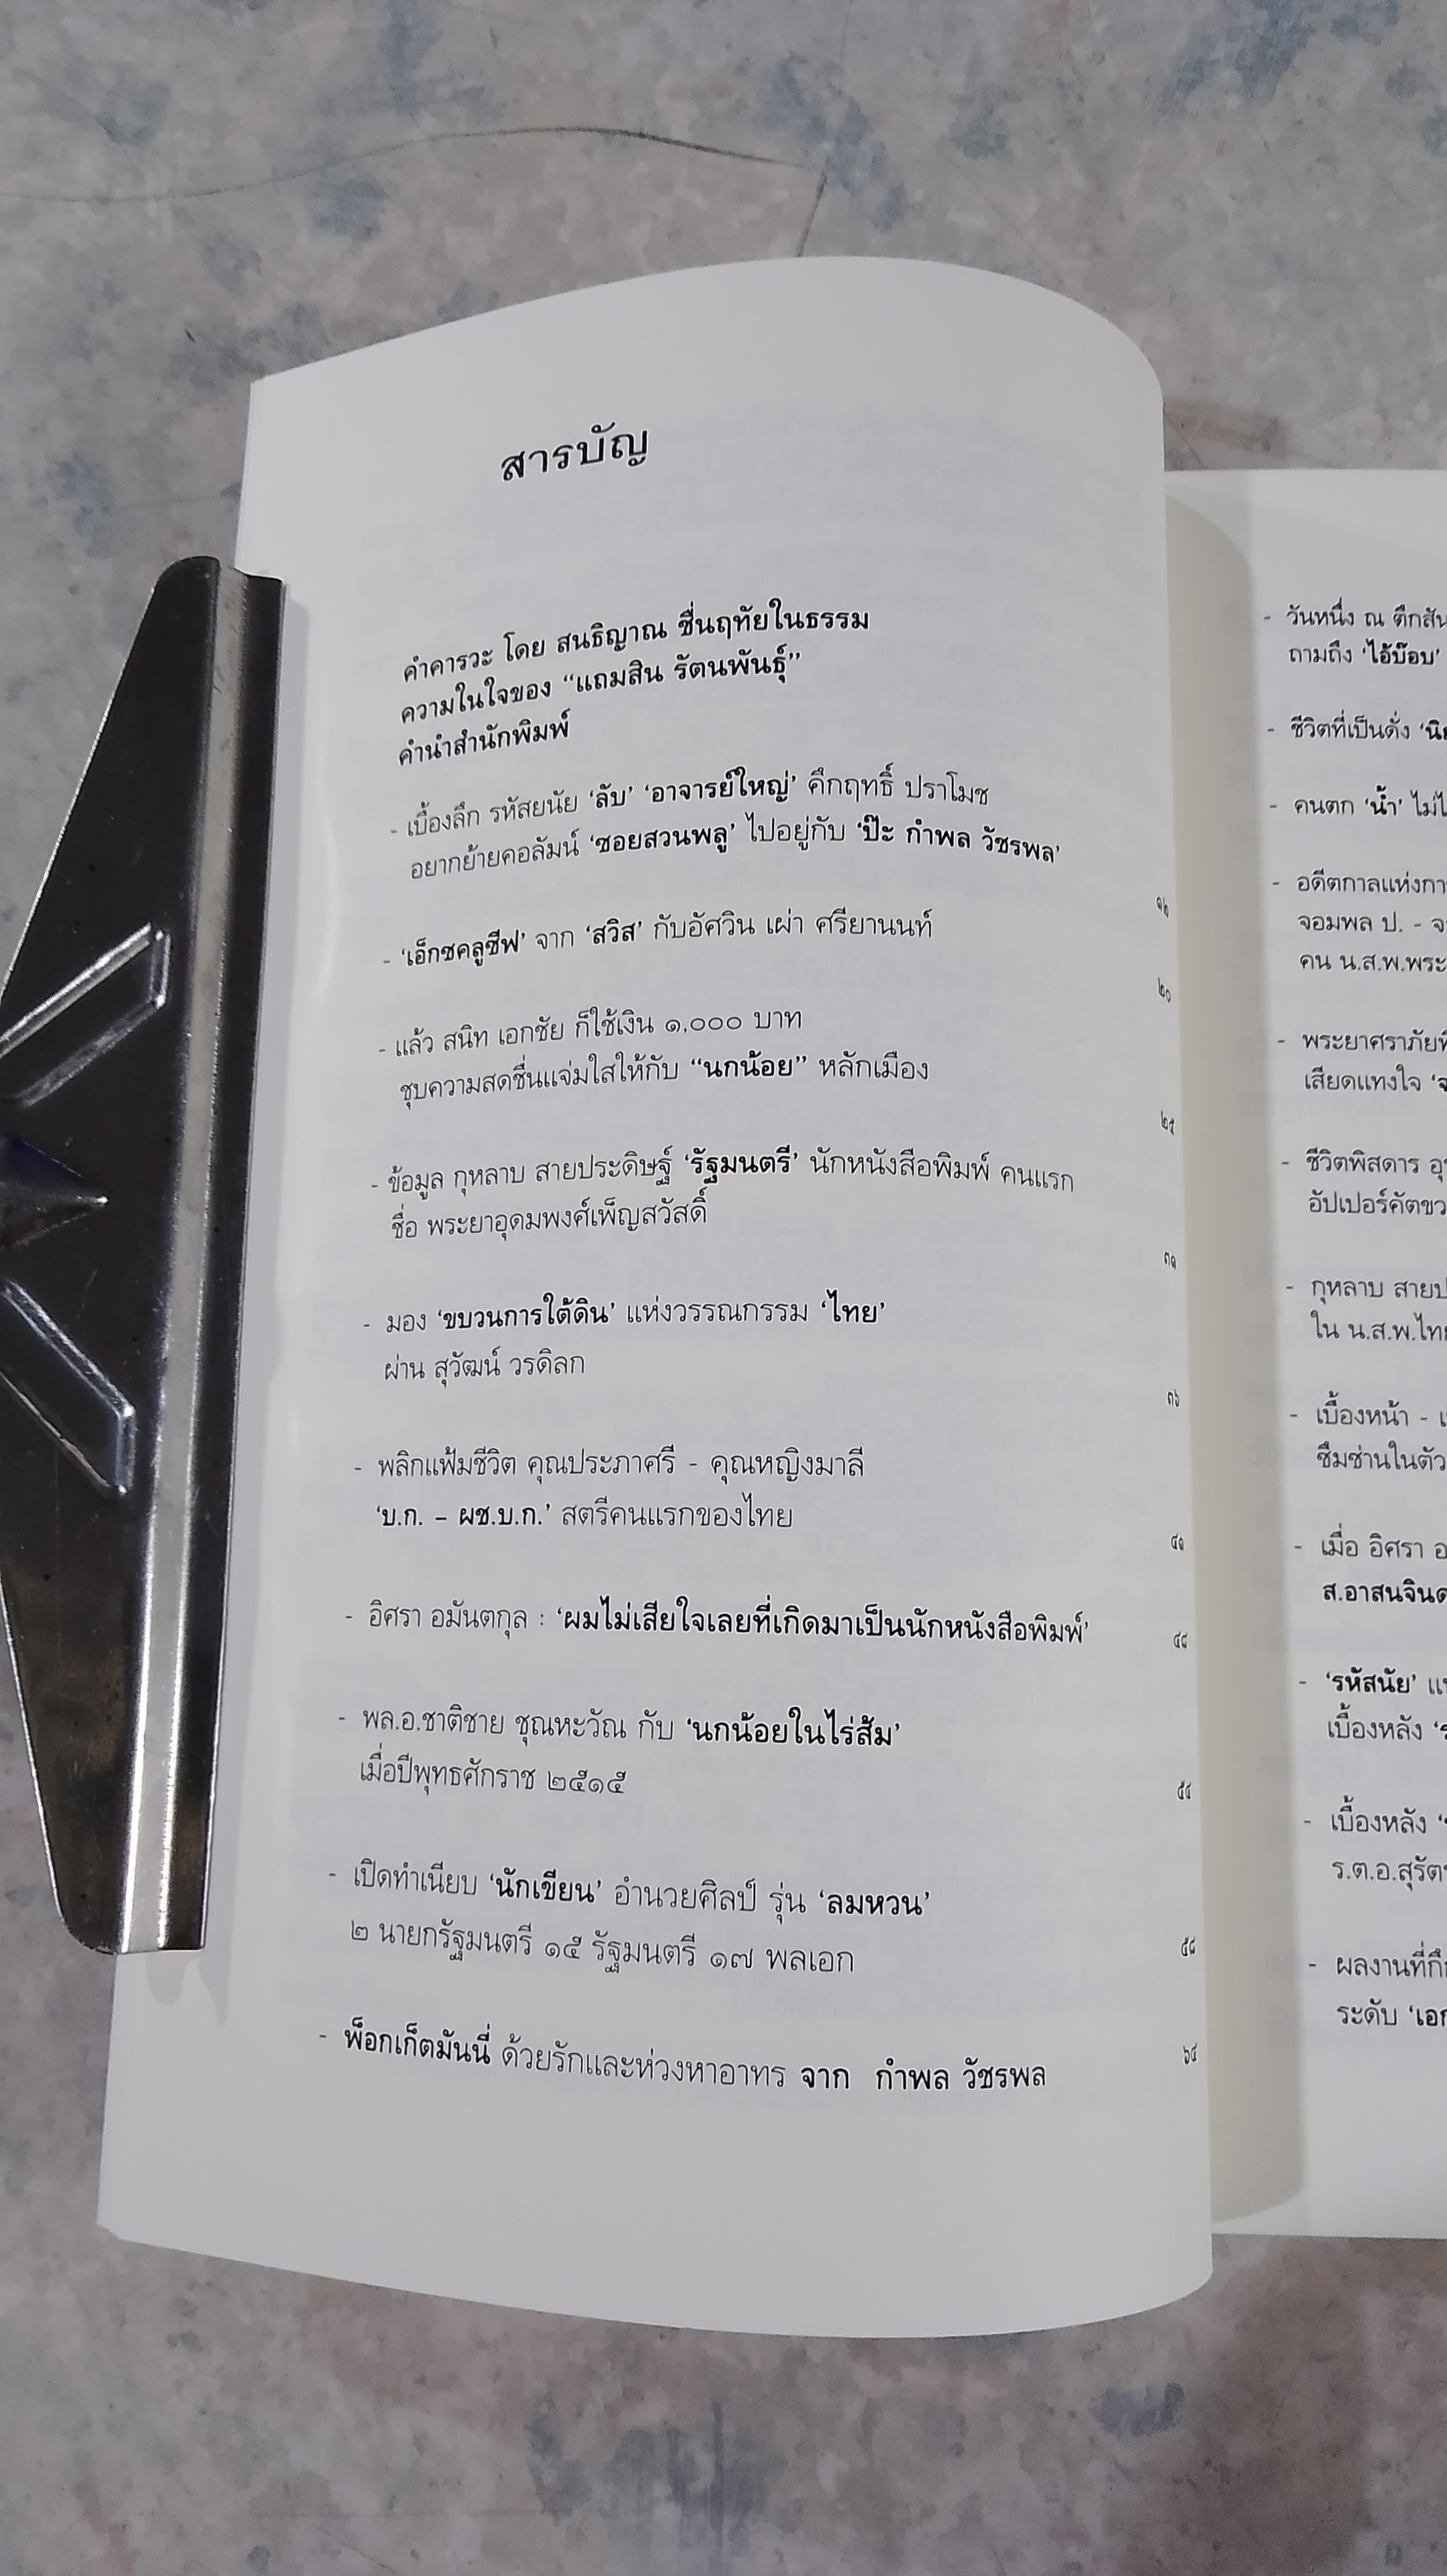 สารบัญ
คำคารวะ โดย สนธิญาณ ชื่นฤทัยในธรรม
ความในใจของ “แถมสิน รัตนพันธุ์”
คำนำสำนักพิมพ์
- เบื้องลึก รหัสยนัย ‘ลับ’ ‘อาจารย์ใหญ่’ คึกฤทธิ์ ปราโมช
อยากย้ายคอลัมน์ ‘ซอยสวนพลู’ ไปอยู่กับ ‘ป๊ะ กำพล วัชรพล’
๑๒
- ‘เอ็กซคลูซีฟ’ จาก ‘สวิส’ กับอัศวิน เผ่า ศรียานนท์
๒๐
- แล้ว สนิท เอกชัย ก็ใช้เงิน ๑,๐๐๐ บาท
ชุบความสดชื่นแจ่มใสให้กับ “นกน้อย” หลักเมือง
๒๕
- ข้อมูล กุหลาบ สายประดิษฐ์ ‘รัฐมนตรี’ นักหนังสือพิมพ์ คนแรก
ชื่อ พระยาอุดมพงศ์เพ็ญสวัสดิ์
๓๑
- มอง ‘ขบวนการใต้ดิน’ แห่งวรรณกรรม ‘ไทย’
ผ่าน สุวัฒน์ วรดิลก
๓๖
- พลิกแฟ้มชีวิต คุณประภาศรี - คุณหญิงมาลี
‘บ.ก. – ผช.บ.ก.’ สตรีคนแรกของไทย
๔๑
- อิศรา อมันตกุล : ‘ผมไม่เสียใจเลยที่เกิดมาเป็นนักหนังสือพิมพ์’
๔๘
- พล.อ.ชาติชาย ชุณหะวัณ กับ ‘นกน้อยในไร่ส้ม’
เมื่อปีพุทธศักราช ๒๕๑๕
๕๔
- เปิดทำเนียบ ‘นักเขียน’ อำนวยศิลป์ รุ่น ‘ลมหวน’
๒ นายกรัฐมนตรี ๑๕ รัฐมนตรี ๑๗ พลเอก
๕๘
- พ็อกเก็ตมันนี่ ด้วยรักและห่วงหาอาทร จาก กำพล วัชรพล
๖๔
- วันหนึ่ง ณ
ถามถึง ‘ไอ้บ๊อบ’
- ชีวิตที่เป็นดั่ง
- คนตก ‘น้ำ’
- อดีตกาลแห่ง
จอมพล ป. -
คน น.ส.พ.
- พระยาศราภัย
เสียดแทงใจ
- ชีวิตพิสดาร
อัปเปอร์คัต
- กุหลาบ
ใน น.ส.พ.
- เบื้องหน้า -
ซึมซ่านใน
- เมื่อ อิศรา
- ‘รหัสนัย’
เบื้องหลัง
- เบื้องหลัง
ร.ต.อ.
- ผลงานที่
ระดับ